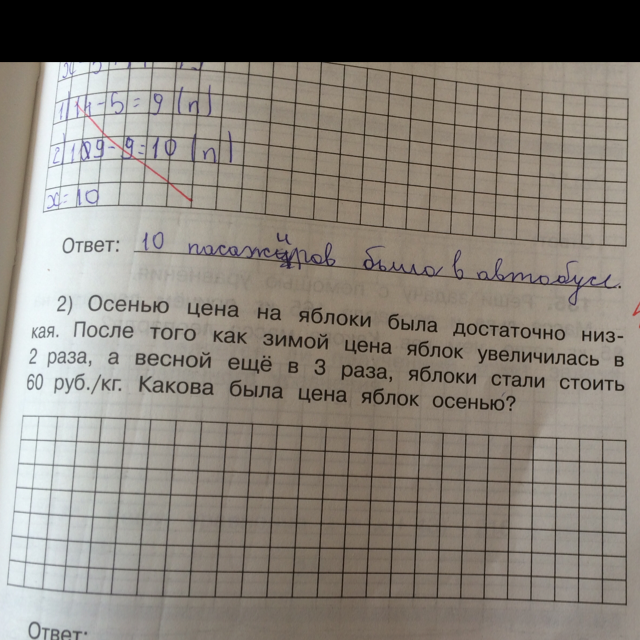 1) 14-5=9 (п)
2) 109-9=10 (п)
х=10
Ответ: 10 пасажиров было в автобусе.
2) Осенью цена на яблоки была достаточно низ-
кая. После того как зимой цена яблок увеличилась в
2 раза, а весной ещё в 3 раза, яблоки стали стоить
60 руб./кг. Какова была цена яблок осенью?
Ответ: